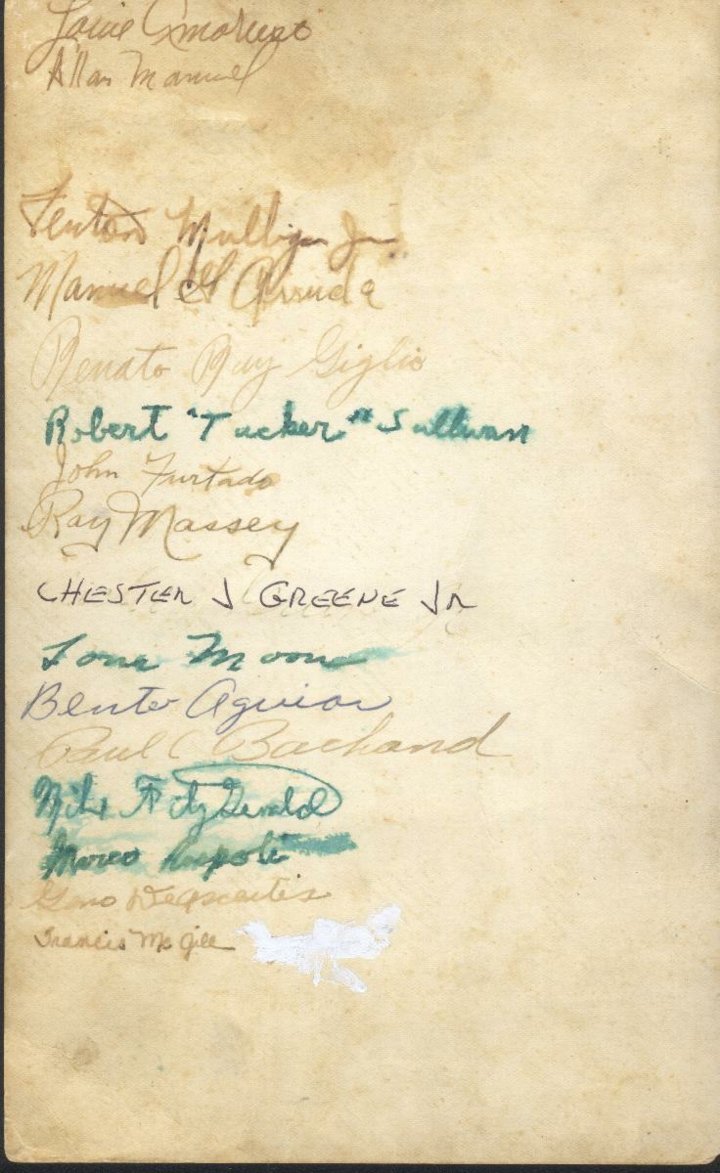 Louie Amoruso
Allan Manuel
Fenton Mulligan Jr
Manuel G Arruda
Renato Ray Giglio
Robert "Tucker" Sullivan
John Furtado
Ray Massey
CHESTER J GREENE JR
Moon
Bento Aguiar
Paul C Bachand
Mike FitzGerald
Marco Rispoli
Geno
Francis McGill